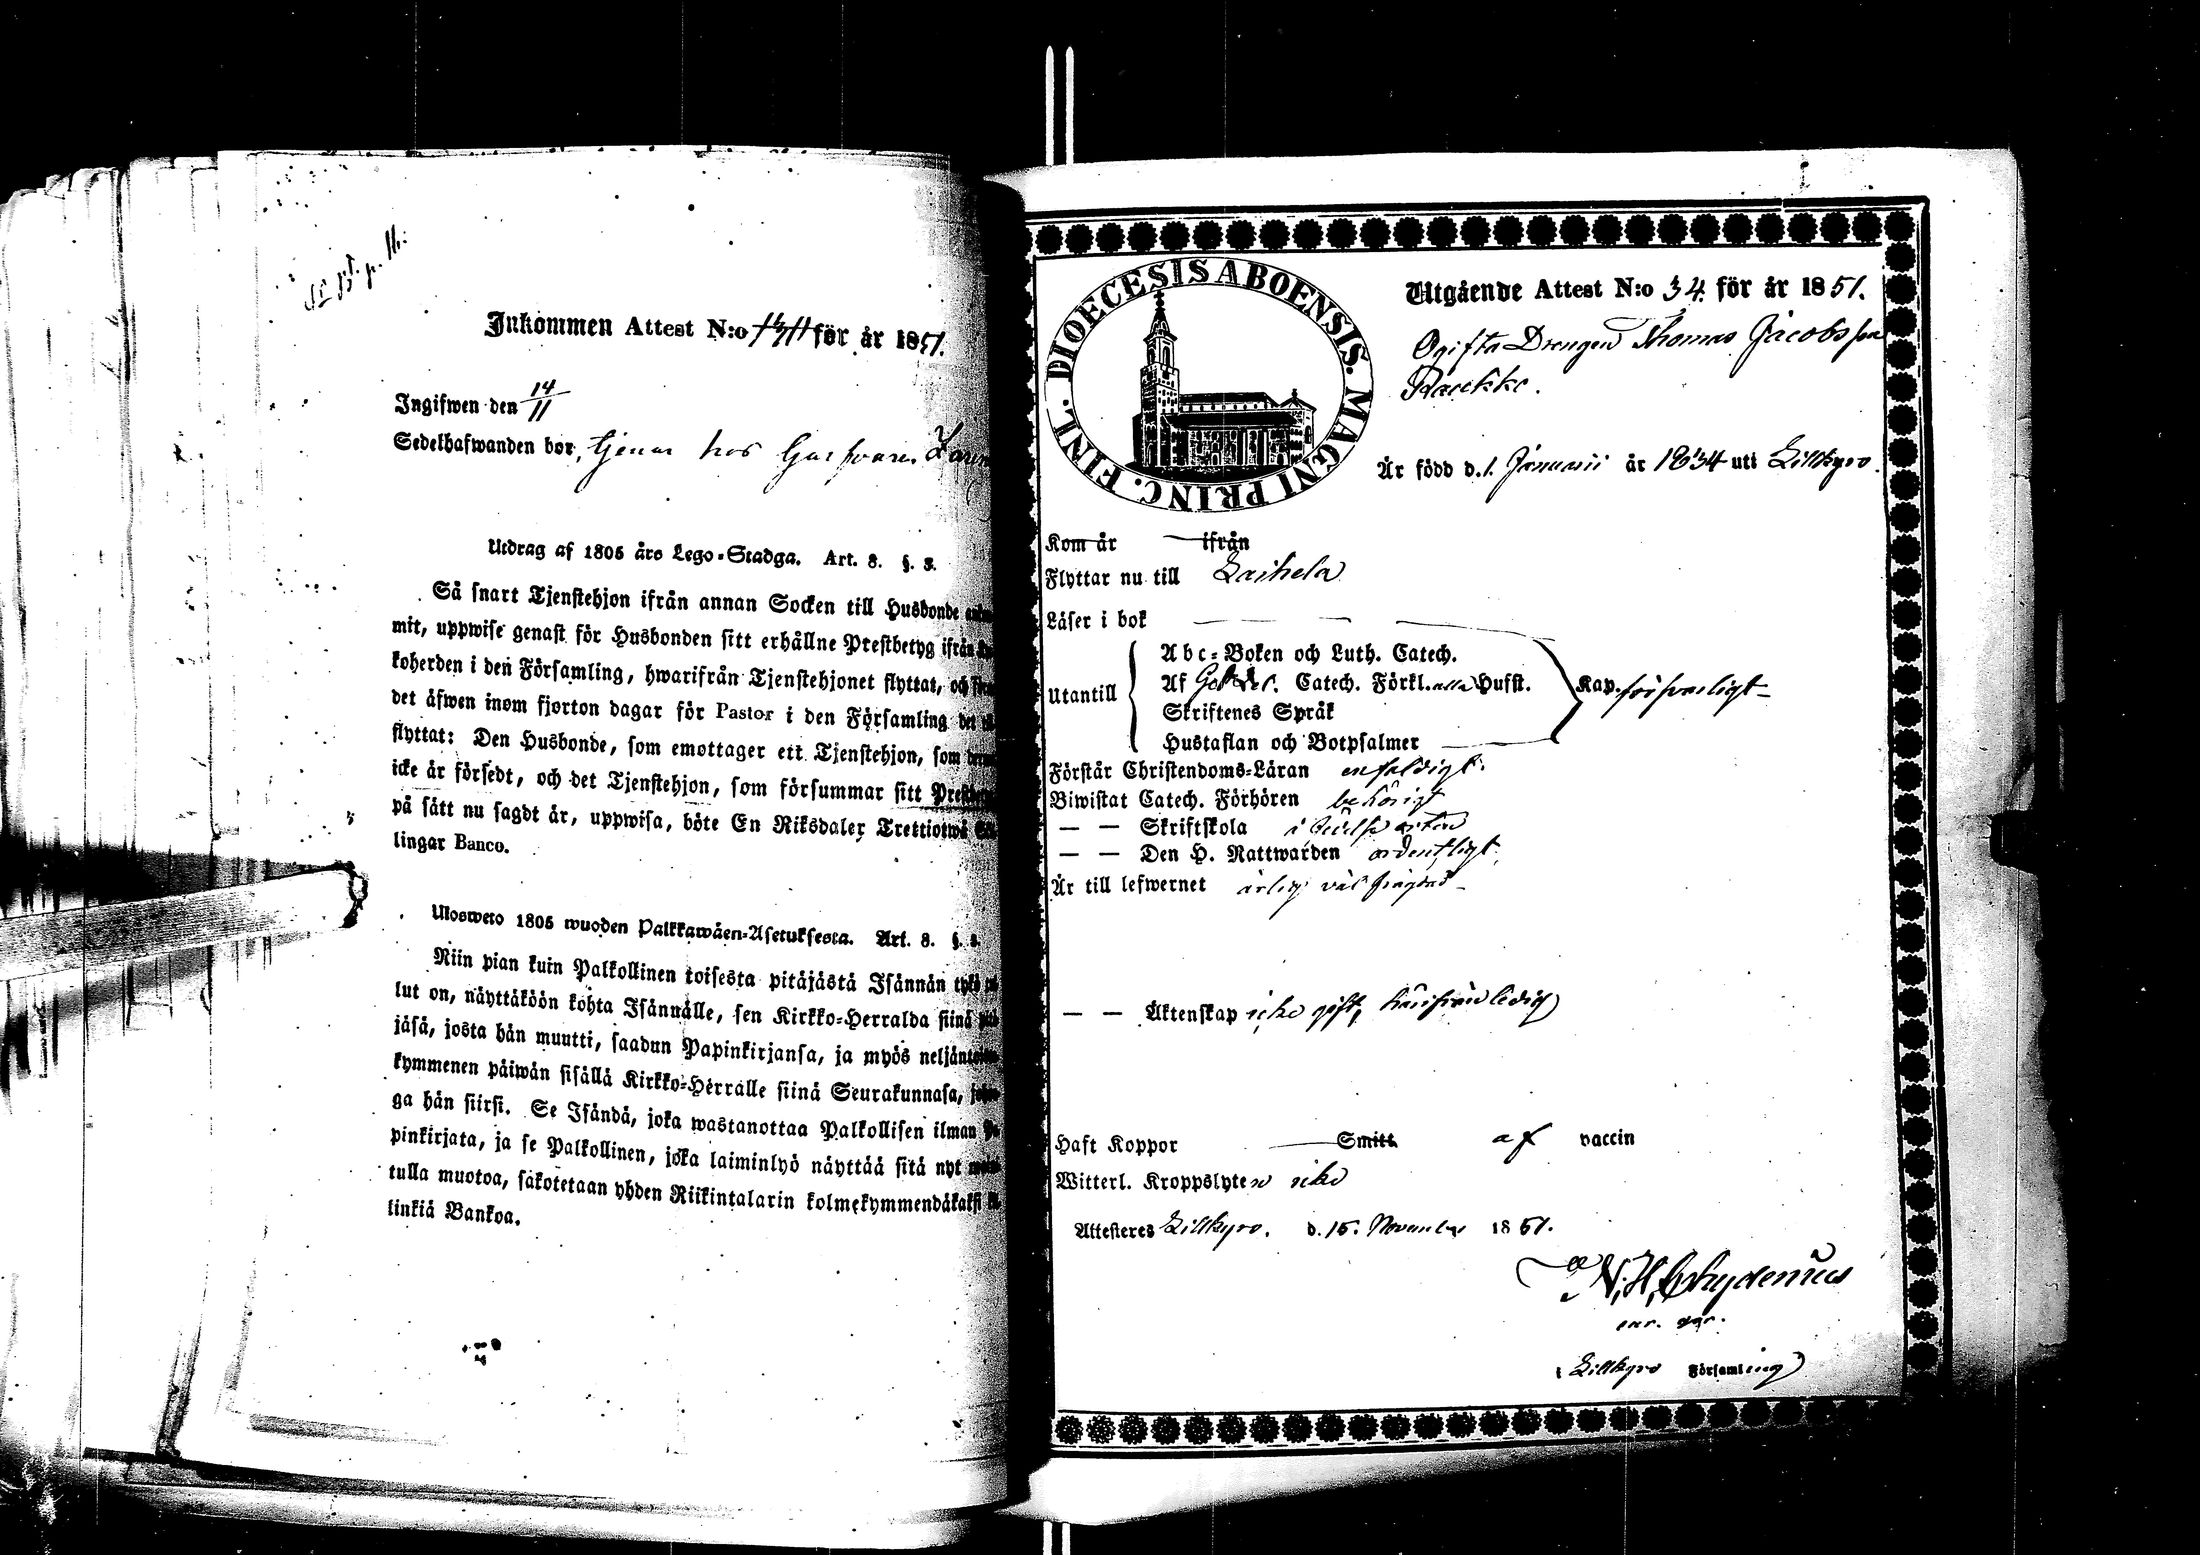 Inkommen Attest N:o för år 1851.
Ingifwen den 14/11
Sedelhafwanden bor, tjenar hos
Utdrag af 1805 års Lego-Stadga. Art. 8. §. 3.
Så snart Tjenstehjon ifrån annan Socken till Husbonde
mit, uppwise genast för Husbonden sitt erhållne Prestbetyg ifrån
koherden i den Församling, hwarifrån Tjenstehjonet flyttat, och
det äfwen inom fjorton dagar för Pastor i den Församling det
flyttat: Den Husbonde, som emottager ett Tjenstehjon, som
icke är försedt, och det Tjenstehjon, som försummar sitt
på sätt nu sagdt är, uppwisa, böte En Riksdaler Trettiotwå
lingar Banco.
Ulosweto 1805 wuoden Palkkawäen-Asetuksesta. Art. 8. §.
Niin pian kuin Palkollinen toisesta pitäjästä Isännän tykö
lut on, näyttäköön kohta Isännälle, sen Kirkko-Herralda siinä
jäsä, josta hän muutti, saadun Papinkirjansa, ja myös
kymmenen päiwän sisällä Kirkko-Herralle siinä Seurakunnasa,
ga hän siirsi. Se Isändä, joka wastanottaa Palkollisen ilman
pinkirjata, ja se Palkollinen, joka laiminlyö näyttää sitä nyt
tulla muotoa, sakotetaan yhden Riikintalarin kolmekymmendäkaksi
linkiä Bankoa.
DIOECESIS ABOENSIS. MAGNI PRINC. FINL.
Utgående Attest N:o 34. för år 1851.
Ogifta Drengen Thomas Jacobsson
Är född d. 1. Januarii år 1834 uti Lillkyro.
Kom år ifrån
Flyttar nu till Laihela
Läser i bok
Utantill
Abc-Boken och Luth. Catech.
Af Catech. Förkl. alla Hufst.
Skriftenes Språk
Hustaflan och Botpsalmer
Kap. försvarligt
Förstår Christendoms-Läran enfaldigt.
Biwistat Catech. Förhören behörigt
— — Skriftskola i
— — Den H. Nattwarden ordentligt.
Är till lefwernet ärlig väl frägdad
— — Äktenskap icke gift, härifrån ledig
Haft Koppor Smitt af vaccin
Witterl. Kroppslyten icke
Attesteres Lillkyro. d. 15. November 1851.
N. H. Chydenius
i Lillkyro Församling